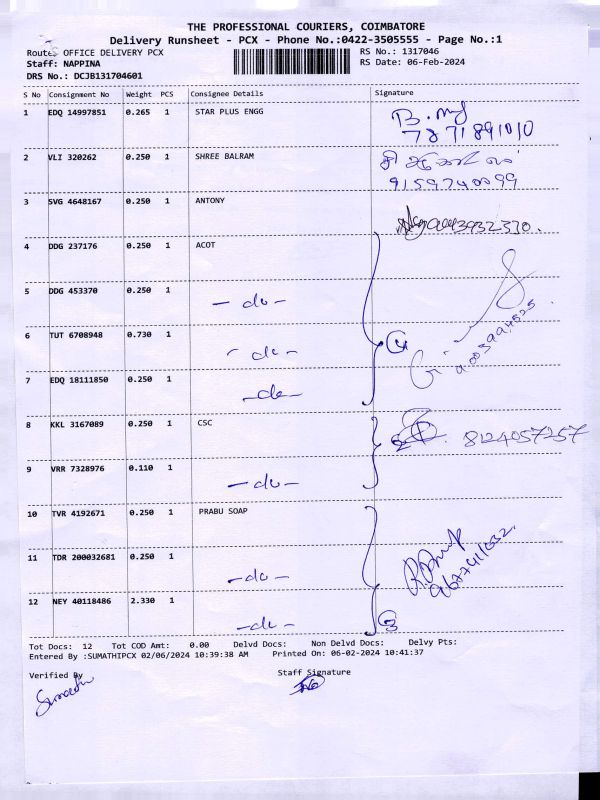 THE PROFESSIONAL COURIERS, COIMBATORE
Delivery Runsheet - PCX - Phone No.:0422-3505555 - Page No.:1
Route: OFFICE DELIVERY PCX RS No.: 1317046
Staff: NAPPINA RS Date: 06-Feb-2024
DRS No.: DCJB131704601
S No Consignment No Weight PCS Consignee Details Signature
1 EDQ 14997851 0.265 1 STAR PLUS ENGG
7871891010
2 VLI 320262 0.250 1 SHREE BALRAM
9159740099
3 SVG 4648167 0.250 1 ANTONY
4 DDG 237176 0.250 1 ACOT
5 DDG 453370 0.250 1 - do -
6 TUT 6708948 0.730 1 - do - 4
7 EDQ 18111850 0.250 1 - do -
8 KKL 3167089 0.250 1 CSC 2 8124057257
9 VRR 7328976 0.110 1 - do -
10 TVR 4192671 0.250 1 PRABU SOAP
11 TDR 200032681 0.250 1 - do -
12 NEY 40118486 2.330 1 - do - 3
Tot Docs: 12 Tot COD Amt: 0.00 Delvd Docs: Non Delvd Docs: Delvy Pts:
Entered By :SUMATHIPCX 02/06/2024 10:39:38 AM Printed On: 06-02-2024 10:41:37
Verified By Staff Signature